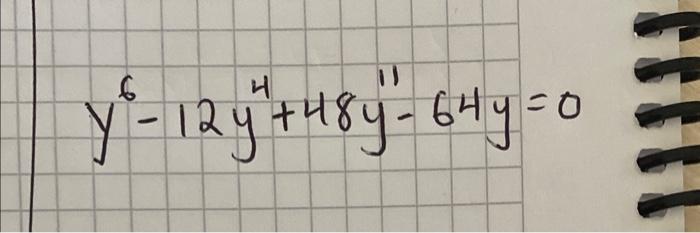 y⁶ - 12y⁴ + 48y'' - 64y = 0